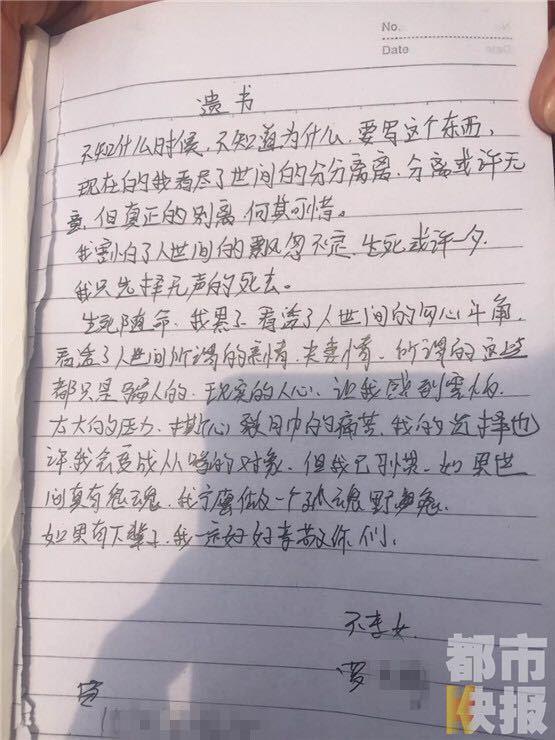 No.
Date
遗书
不知什么时候,不知道为什么,要写这个东西,
现在的我看尽了世间的分分离离,分离或许无
意,但真正的别离何其可惜。
我害怕了人世间的飘忽不定,生死或许一夕,
我只选择无声的死去。
生死随命,我累了,看透了人世间的勾心斗角,
看透了人世间所谓的亲情,夫妻情,所谓的这些
都只是骗人的,现实的人心,让我感到害怕,
太大的压力,撕心裂肺的痛苦,我的选择也
许我会变成人的对象,但我已习惯,如果世
间真有鬼魂,我宁愿做一个孤魂野鬼,
如果有下辈子,我一定好好孝敬你们,
不孝女
罗
都市
快报